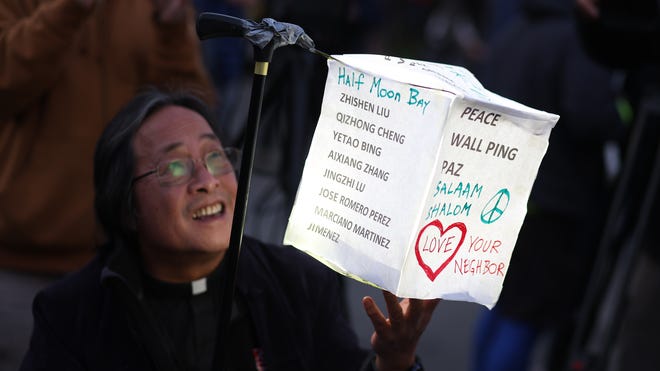 Half Moon Bay
ZHISHEN LIU
QIZHONG CHENG
YETAO BING
AIXIANG ZHANG
JINGZHI LU
JOSE ROMERO PEREZ
MARCIANO MARTINEZ
JIMENEZ
PEACE
WALL PING
PAZ
SALAAM
SHALOM
LOVE YOUR
NEIGHBOR